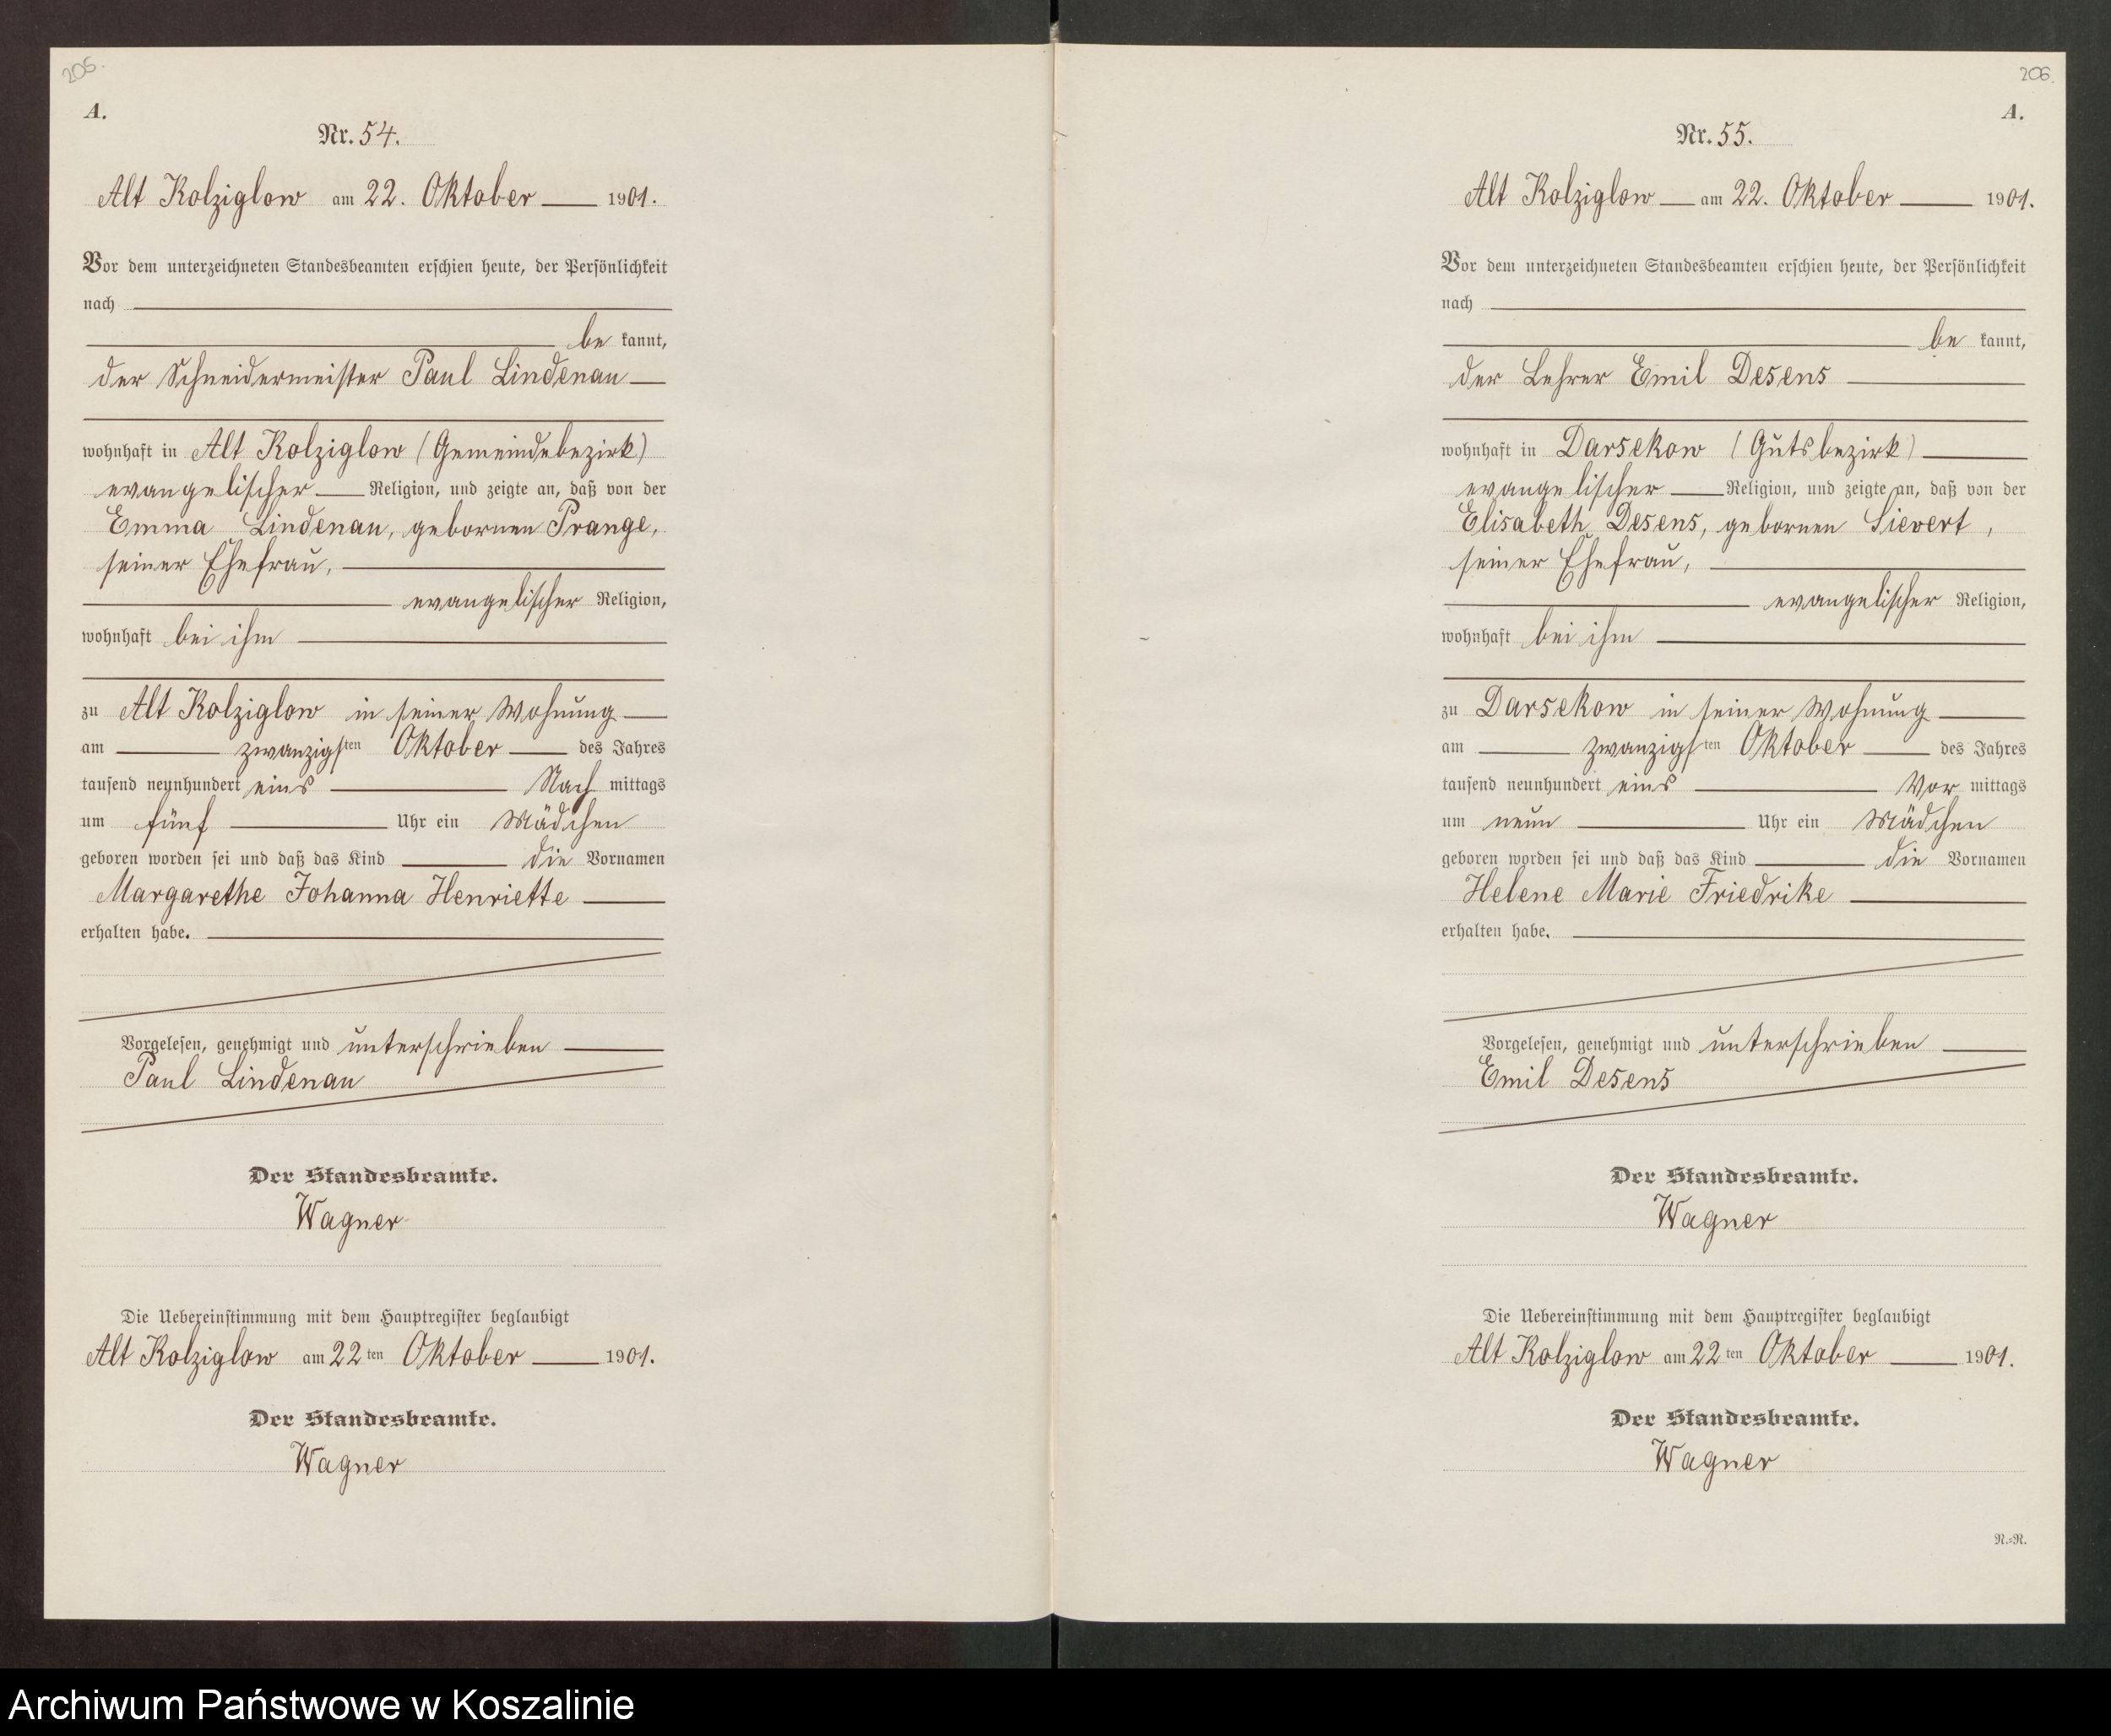 205.
A.
Nr. 54.
Alt Kolziglow am 22. Oktober 1901.
Vor dem unterzeichneten Standesbeamten erschien heute, der Persönlichkeit
nach
be kannt,
der Schneidermeister Paul Lindenau
wohnhaft in Alt Kolziglow (Gemeindebezirk)
evangelischer Religion, und zeigte an, daß von der
Emma Lindenau, gebornen Prange,
seiner Ehefrau,
evangelischer Religion,
wohnhaft bei ihm
zu Alt Kolziglow in seiner Wohnung
am zwanzigsten Oktober des Jahres
tausend neunhundert eins Nach mittags
um fünf Uhr ein Mädchen
geboren worden sei und daß das Kind die Vornamen
Margarethe Johanna Henriette
erhalten habe.
Vorgelesen, genehmigt und unterschrieben
Paul Lindenau
Der Standesbeamte.
Wagner
Die Uebereinstimmung mit dem Hauptregister beglaubigt
Alt Kolziglow am 22ten Oktober 1901.
Der Standesbeamte.
Wagner
206.
A.
Nr. 55.
Alt Kolziglow am 22. Oktober 1901.
Vor dem unterzeichneten Standesbeamten erschien heute, der Persönlichkeit
nach
be kannt,
der Lehrer Emil Desens
wohnhaft in Darsekow (Gutsbezirk)
evangelischer Religion, und zeigte an, daß von der
Elisabeth Desens, gebornen Sievert,
seiner Ehefrau,
evangelischer Religion,
wohnhaft bei ihm
zu Darsekow in seiner Wohnung
am zwanzigsten Oktober des Jahres
tausend neunhundert eins Vor mittags
um neun Uhr ein Mädchen
geboren worden sei und daß das Kind die Vornamen
Helene Marie Friedrike
erhalten habe.
Vorgelesen, genehmigt und unterschrieben
Emil Desens
Der Standesbeamte.
Wagner
Die Uebereinstimmung mit dem Hauptregister beglaubigt
Alt Kolziglow am 22ten Oktober 1901.
Der Standesbeamte.
Wagner
N.=R.
Archiwum Państwowe w Koszalinie